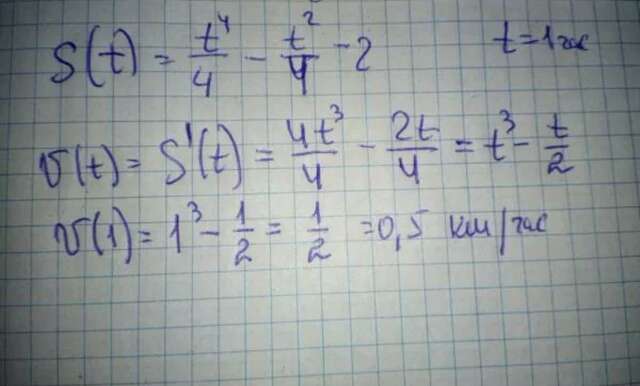 S(t) = t⁴/4 - t²/4 - 2 t=1час
v(t) = S'(t) = 4t³/4 - 2t/4 = t³ - t/2
v(1) = 1³ - 1/2 = 1/2 = 0,5 км/час